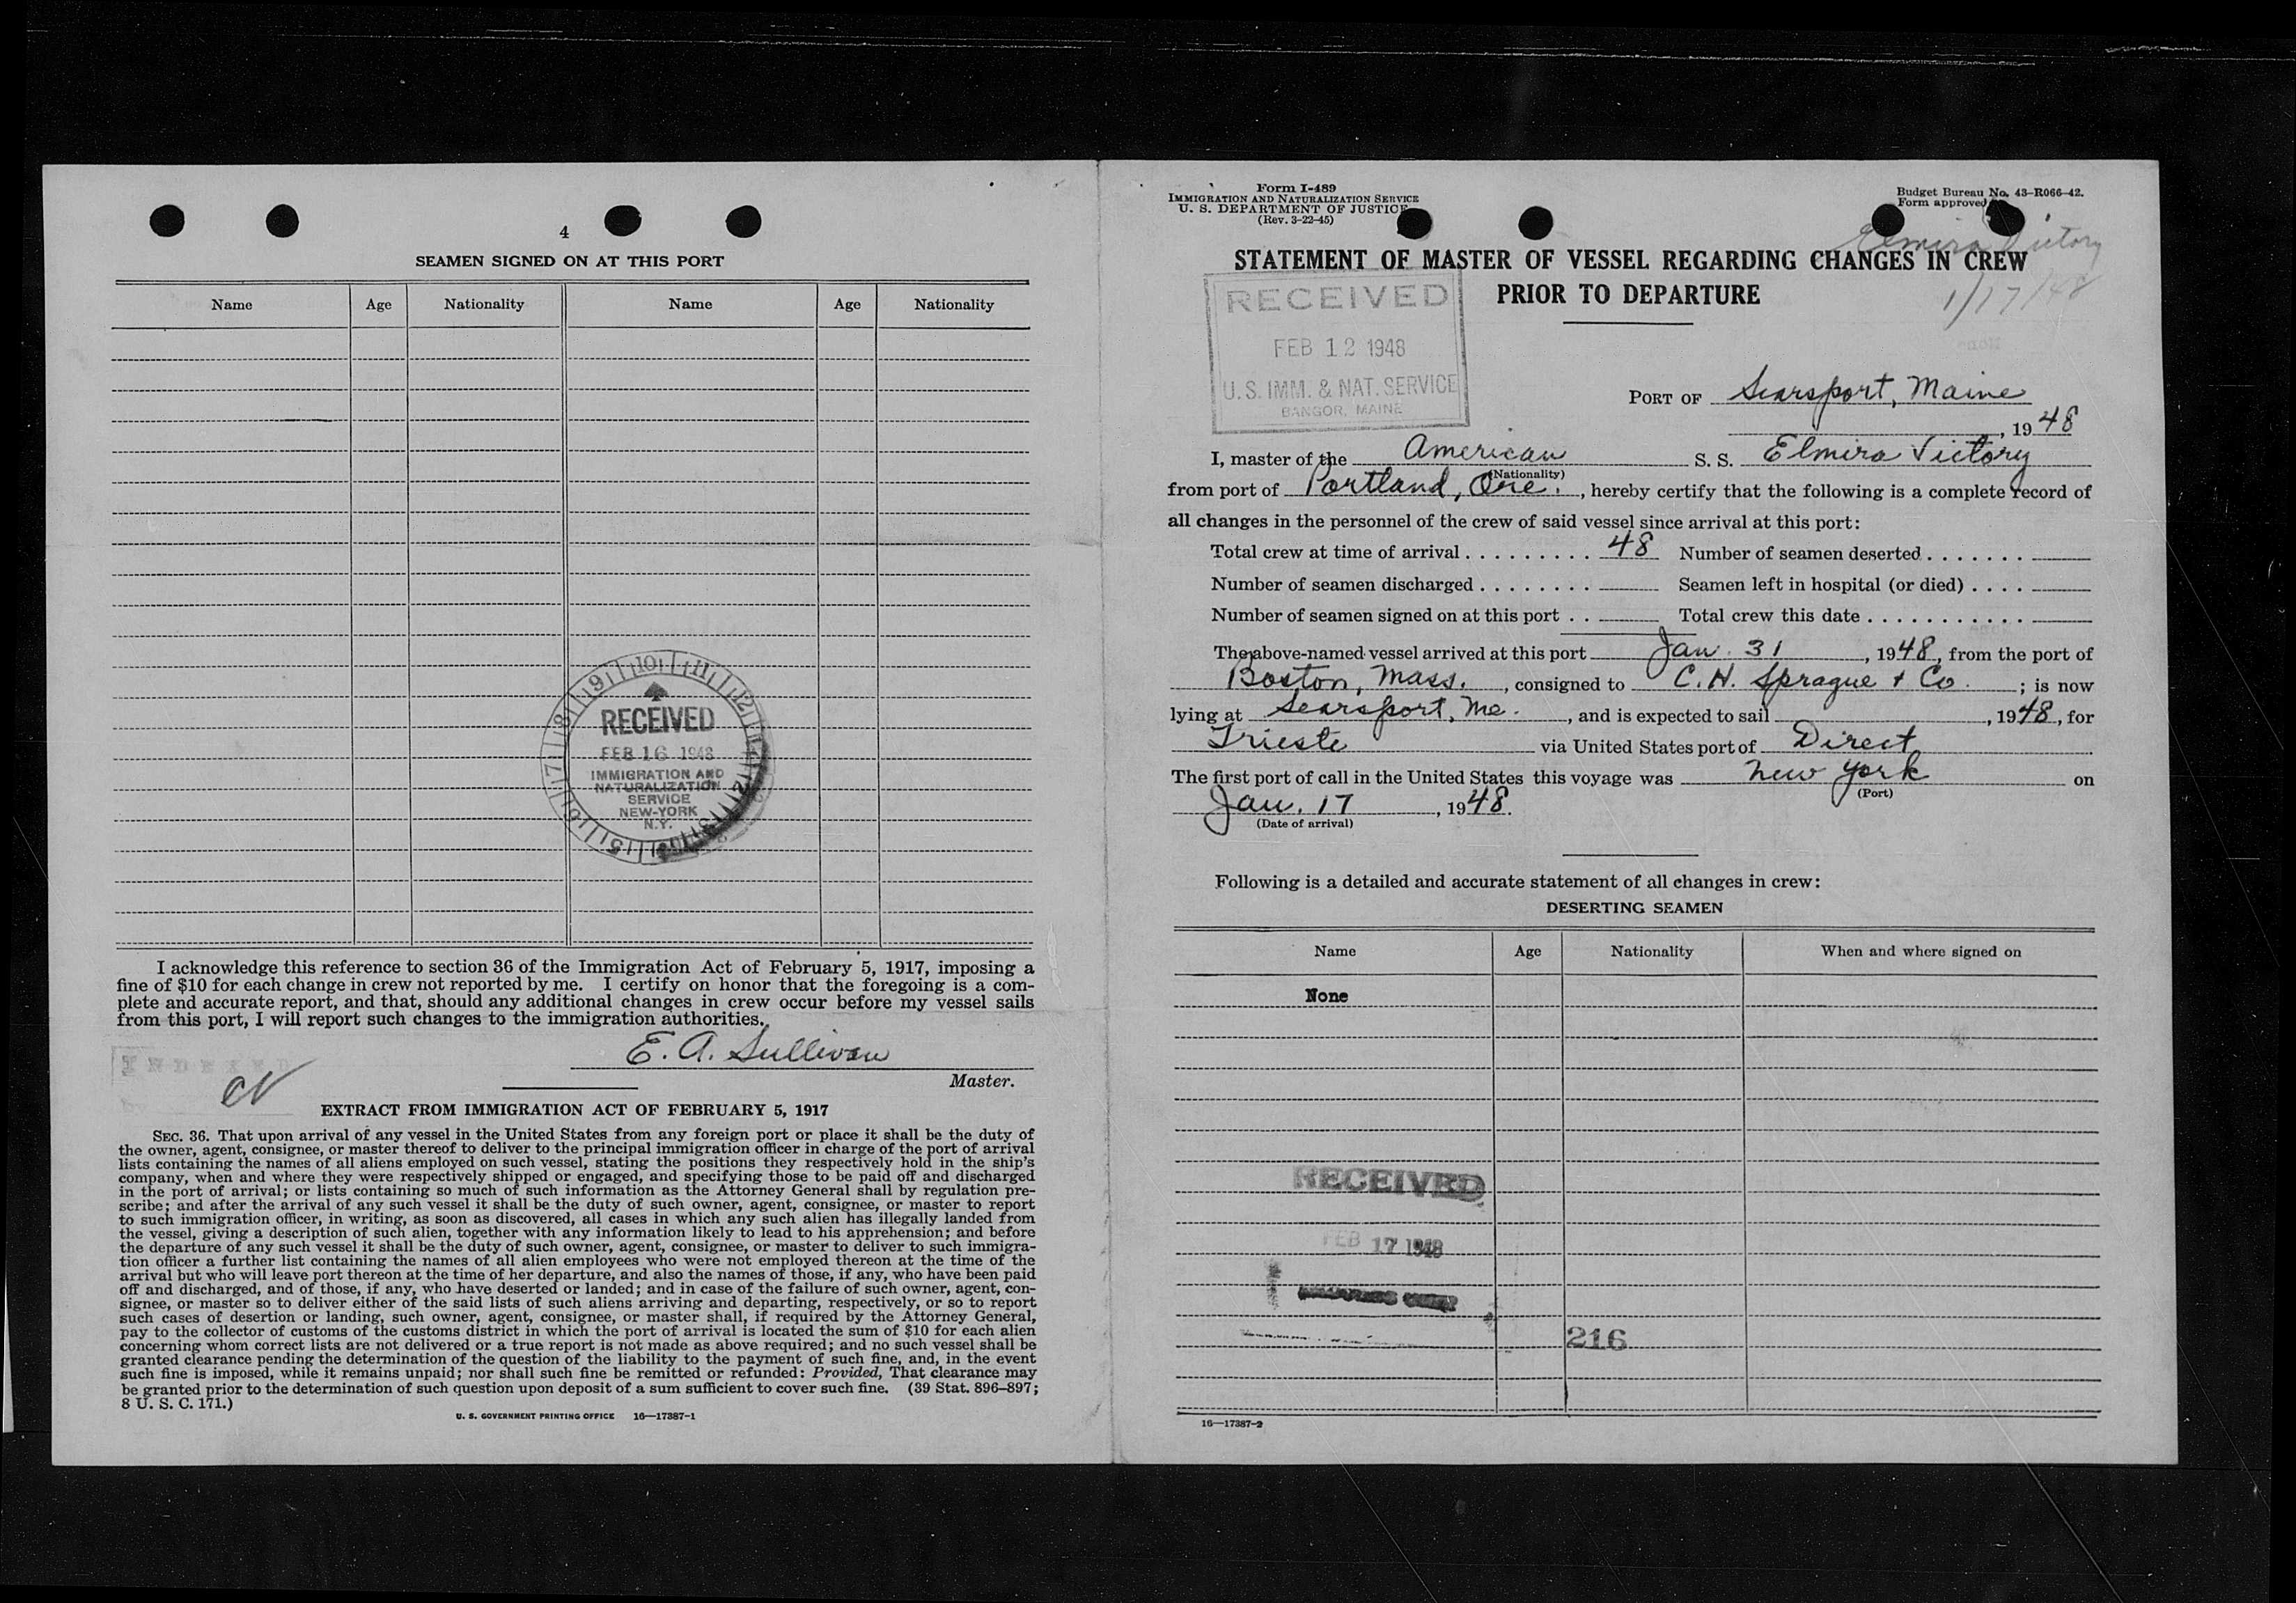 4
SEAMEN SIGNED ON AT THIS PORT
Name Age Nationality Name Age Nationality
10 11 12
9
8
7
RECEIVED
FEB 16 1948
IMMIGRATION AND
NATURALIZATION
SERVICE
NEW-YORK
N.Y.
I acknowledge this reference to section 36 of the Immigration Act of February 5, 1917, imposing a
fine of $10 for each change in crew not reported by me. I certify on honor that the foregoing is a com-
plete and accurate report, and that, should any additional changes in crew occur before my vessel sails
from this port, I will report such changes to the immigration authorities.
E. A. Sullivan
Master.
INDEXED
EXTRACT FROM IMMIGRATION ACT OF FEBRUARY 5, 1917
SEC. 36. That upon arrival of any vessel in the United States from any foreign port or place it shall be the duty of
the owner, agent, consignee, or master thereof to deliver to the principal immigration officer in charge of the port of arrival
lists containing the names of all aliens employed on such vessel, stating the positions they respectively hold in the ship's
company, when and where they were respectively shipped or engaged, and specifying those to be paid off and discharged
in the port of arrival; or lists containing so much of such information as the Attorney General shall by regulation pre-
scribe; and after the arrival of any such vessel it shall be the duty of such owner, agent, consignee, or master to report
to such immigration officer, in writing, as soon as discovered, all cases in which any such alien has illegally landed from
the vessel, giving a description of such alien, together with any information likely to lead to his apprehension; and before
the departure of any such vessel it shall be the duty of such owner, agent, consignee, or master to deliver to such immigra-
tion officer a further list containing the names of all alien employees who were not employed thereon at the time of the
arrival but who will leave port thereon at the time of her departure, and also the names of those, if any, who have been paid
off and discharged, and of those, if any, who have deserted or landed; and in case of the failure of such owner, agent, con-
signee, or master so to deliver either of the said lists of such aliens arriving and departing, respectively, or so to report
such cases of desertion or landing, such owner, agent, consignee, or master shall, if required by the Attorney General,
pay to the collector of customs of the customs district in which the port of arrival is located the sum of $10 for each alien
concerning whom correct lists are not delivered or a true report is not made as above required; and no such vessel shall be
granted clearance pending the determination of the question of the liability to the payment of such fine, and, in the event
such fine is imposed, while it remains unpaid; nor shall such fine be remitted or refunded: Provided, That clearance may
be granted prior to the determination of such question upon deposit of a sum sufficient to cover such fine. (39 Stat. 896–897;
8 U. S. C. 171.)
U. S. GOVERNMENT PRINTING OFFICE 16—17387-1
Form I-489
IMMIGRATION AND NATURALIZATION SERVICE
U. S. DEPARTMENT OF JUSTICE
(Rev. 3-22-45)
Budget Bureau No. 43-R066-42.
Form approved
Elmira Victory
1/17/48
STATEMENT OF MASTER OF VESSEL REGARDING CHANGES IN CREW
PRIOR TO DEPARTURE
RECEIVED
FEB 12 1948
U.S. IMM. & NAT. SERVICE
BANGOR, MAINE
PORT OF Searsport, Maine
, 19 48
I, master of the American S. S. Elmira Victory
(Nationality)
from port of Portland, Ore. , hereby certify that the following is a complete record of
all changes in the personnel of the crew of said vessel since arrival at this port:
Total crew at time of arrival . . . . . . . . . 48 Number of seamen deserted . . . . . . .
Number of seamen discharged . . . . . . . . Seamen left in hospital (or died) . . . .
Number of seamen signed on at this port . . Total crew this date . . . . . . . . . . .
The above-named vessel arrived at this port Jan. 31 , 1948, from the port of
Boston, Mass. , consigned to C. H. Sprague + Co. ; is now
lying at Searsport, Me. , and is expected to sail , 1948, for
Trieste via United States port of Direct
The first port of call in the United States this voyage was New York on
(Port)
Jan. 17 , 1948.
(Date of arrival)
Following is a detailed and accurate statement of all changes in crew:
DESERTING SEAMEN
Name Age Nationality When and where signed on
None
RECEIVED
FEB 17 1948
216
16—17387-2